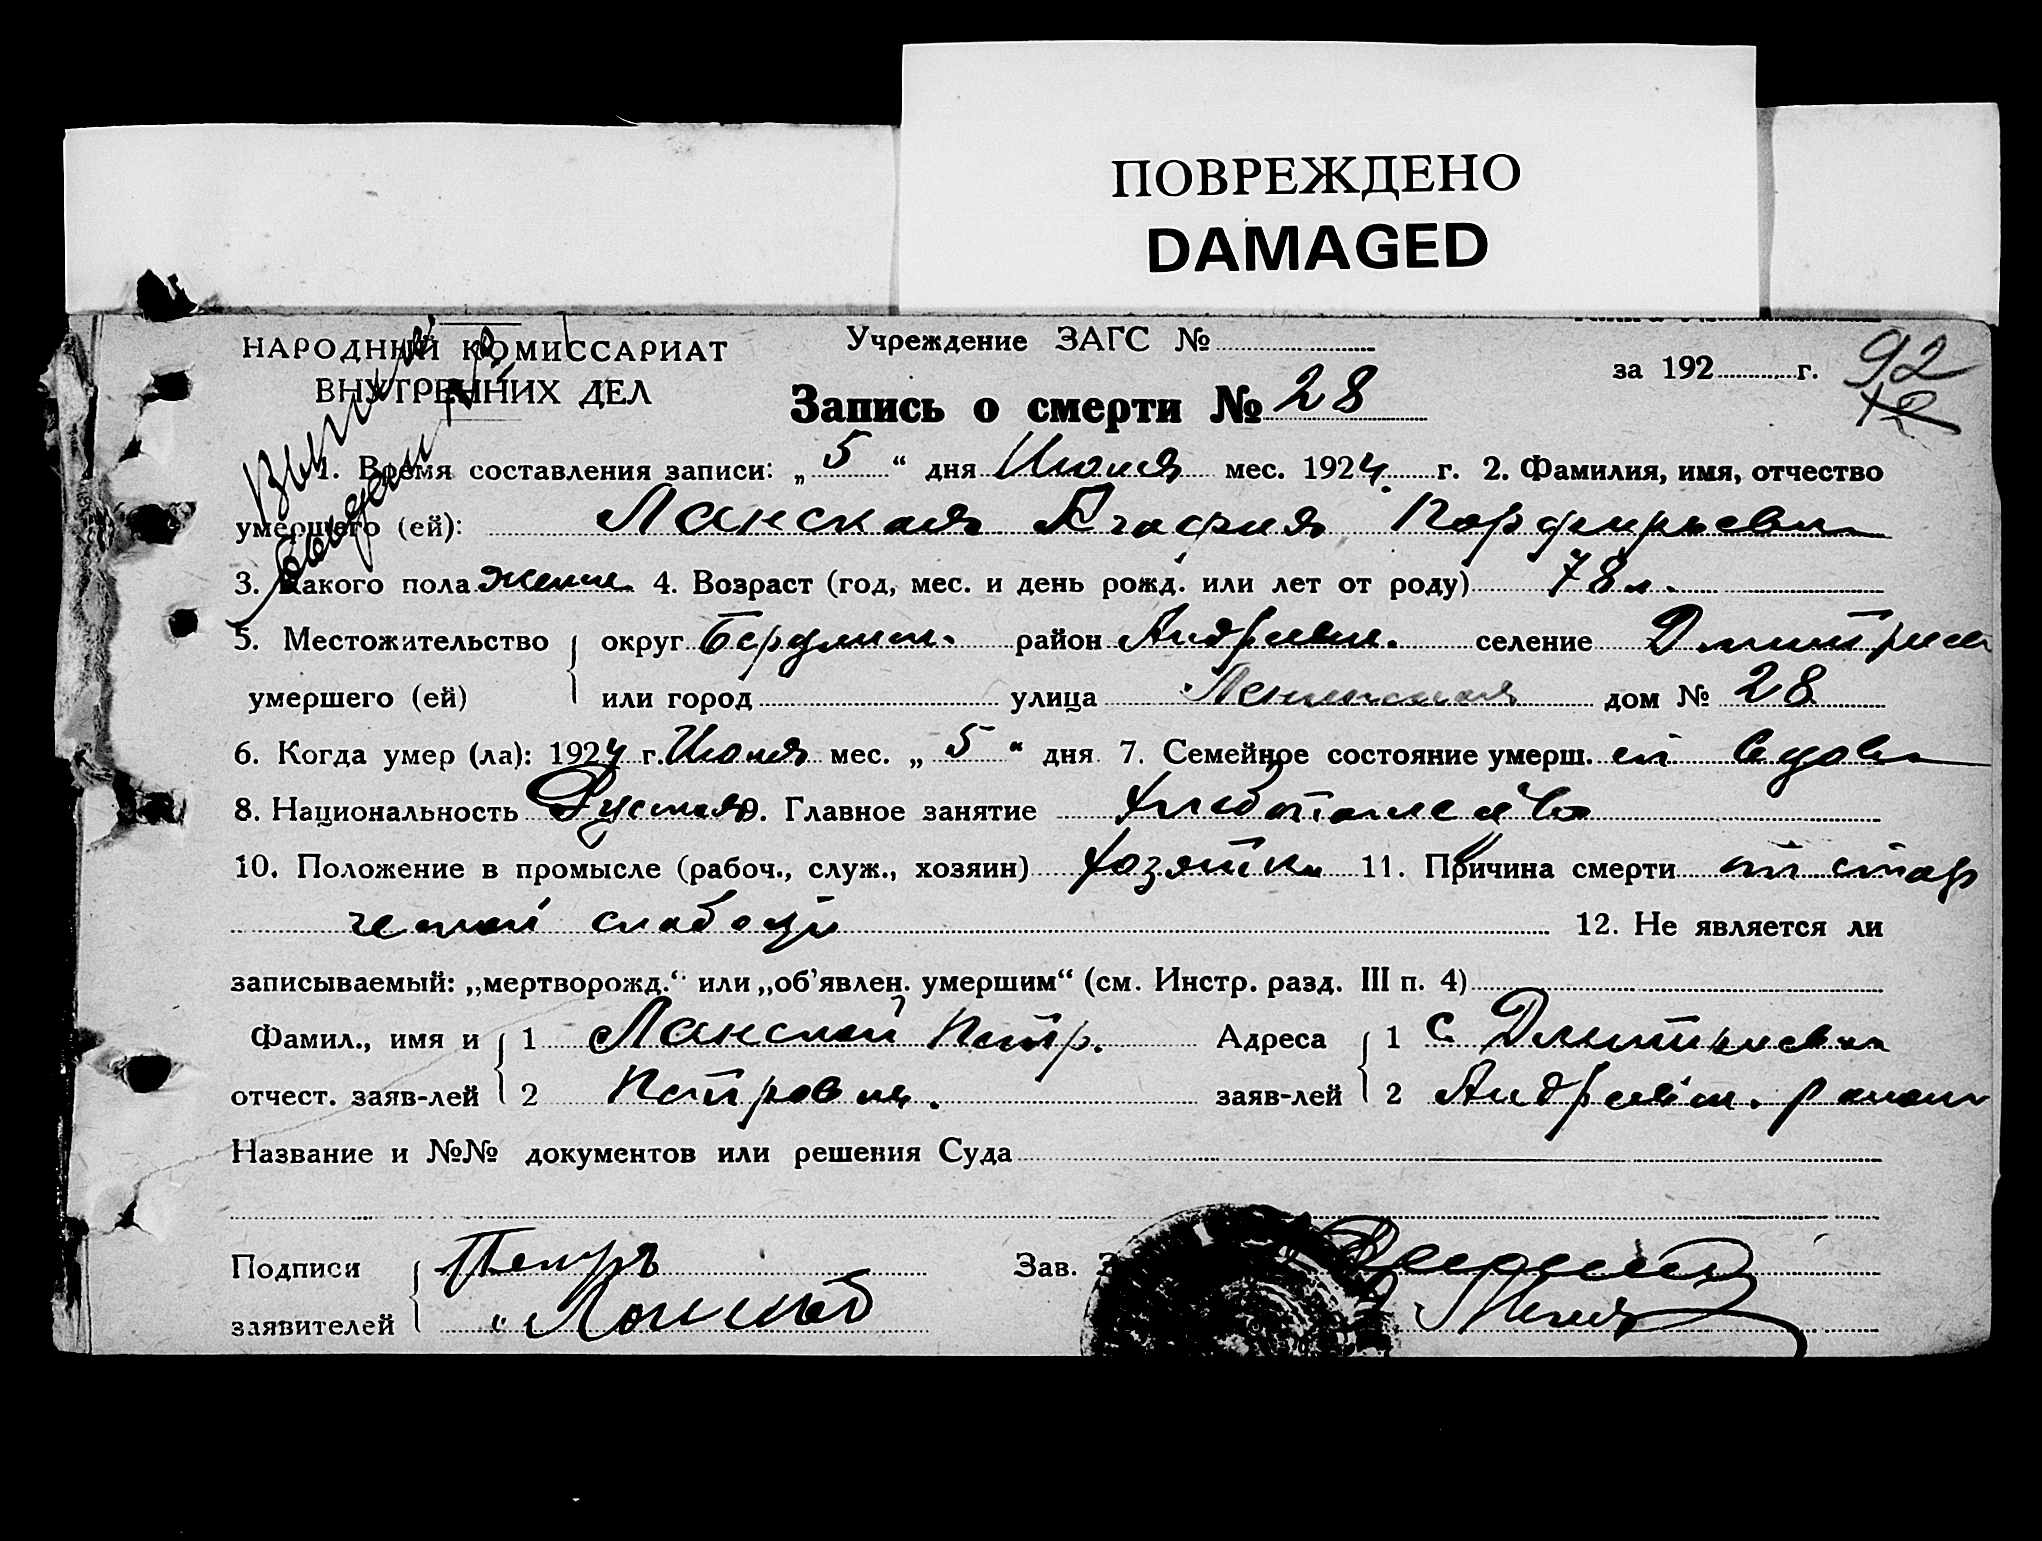 ПОВРЕЖДЕНО
DAMAGED
НАРОДНЫЙ КОМИССАРИАТ
ВНУТРЕННИХ ДЕЛ
Учреждение ЗАГС №
за 192 г.
92
Запись о смерти № 28
1. Время составления записи: „5“ дня Июня мес. 1924 г. 2. Фамилия, имя, отчество
умершего (ей): Ланская Агафия Порфирьевн
3. Какого пола женс 4. Возраст (год, мес. и день рожд. или лет от роду) 78 л.
5. Местожительство округ Бердянск. район Андреевск. селение Дмитриев
умершего (ей) или город улица Ленинская дом № 28
6. Когда умер (ла): 1924 г. Июня мес. „5“ дня 7. Семейное состояние умерш. ей вдова
8. Национальность Русская 9. Главное занятие хлебопашество
10. Положение в промысле (рабоч., служ., хозяин) хозяйка 11. Причина смерти от стар
ческой слабости 12. Не является ли
записываемый: „мертворожд.“ или „об'явлен. умершим“ (см. Инстр. разд. III п. 4)
Фамил., имя и 1 Ланской Петр. Адреса 1 с Дмитриевка
отчест. заяв-лей 2 Петрович. заяв-лей 2 Андреевск. района
Название и №№ документов или решения Суда
Подписи Петръ Зав.
заявителей „ Ланской